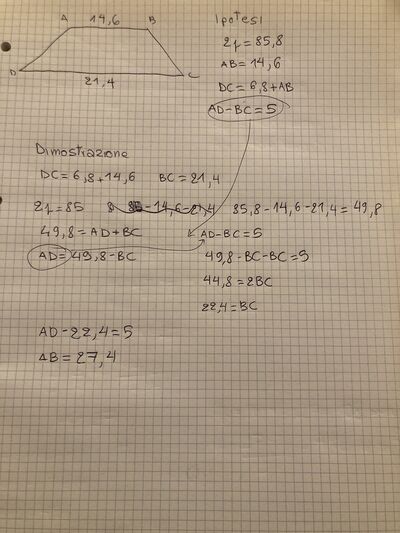 A 14,6 B
D C
21,4
Ipotesi
2p = 85,8
AB = 14,6
DC = 6,8 + AB
AD - BC = 5
Dimostrazione
DC = 6,8 + 14,6 BC = 21,4
2p = 85 - 14,6 - 21,4 85,8 - 14,6 - 21,4 = 49,8
49,8 = AD + BC AD - BC = 5
AD = 49,8 - BC 49,8 - BC - BC = 5
44,8 = 2BC
22,4 = BC
AD - 22,4 = 5
AB = 27,4